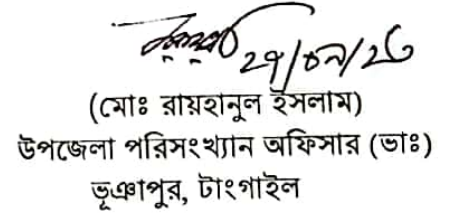 (মোঃ রায়হানুল ইসলাম)
উপজেলা পরিসংখ্যান অফিসার (ভাঃ)
ভূঞাপুর, টাংগাইল